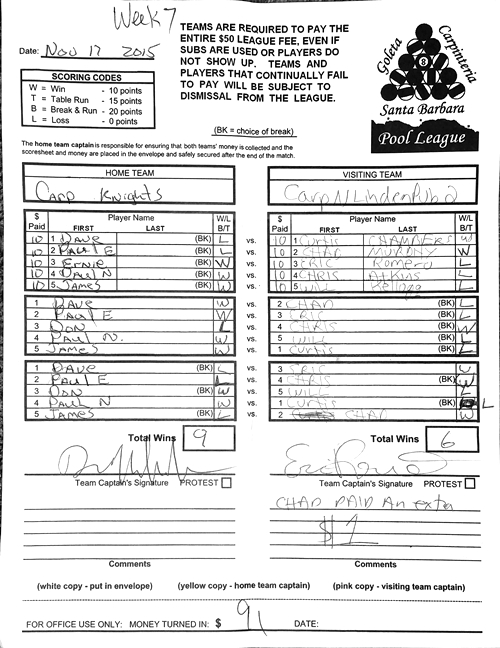 Week 7
TEAMS ARE REQUIRED TO PAY THE
ENTIRE $50 LEAGUE FEE, EVEN IF
SUBS ARE USED OR PLAYERS DO
NOT SHOW UP. TEAMS AND
PLAYERS THAT CONTINUALLY FAIL
TO PAY WILL BE SUBJECT TO
DISMISSAL FROM THE LEAGUE.
Date: Nov 17 2015
SCORING CODES
W = Win - 10 points
T = Table Run - 15 points
B = Break & Run - 20 points
L = Loss - 0 points
(BK = choice of break)
Goleta Carpinteria
8
Santa Barbara
Pool League
The home team captain is responsible for ensuring that both teams' money is collected and the
scoresheet and money are placed in the envelope and safely secured after the end of the match.
HOME TEAM VISITING TEAM
Carp Knights Carp N Linden Pub 2
$ Paid Player Name FIRST LAST W/L B/T $ Paid Player Name FIRST LAST W/L B/T
10 1 Dave (BK) L vs. 10 1 Curtis CHAMBERS W
10 2 Paul E (BK) L vs. 10 2 CHAD MURPHY W
10 3 Ernie (BK) W vs. 10 3 ERIC Romero L
10 4 Paul N (BK) W vs. 10 4 CHRIS Atkins L
10 5 James (BK) W vs. 10 5 WILL Kellogg L
1 Dave W vs. 2 CHAD (BK) L
2 Paul E W vs. 3 ERIC (BK) L
3 Don L vs. 4 CHRIS (BK) W
4 Paul N. W vs. 5 WILL (BK) L
5 James W vs. 1 Curtis (BK) L
1 Dave (BK) L vs. 3 ERIC W
2 Paul E L vs. 4 CHRIS (BK) W
3 Don (BK) W vs. 5 WILL L
4 Paul N W vs. 1 Curtis (BK) L
5 James (BK) L vs. 2 CHAD W
Total Wins 9 Total Wins 6
Team Captain's Signature PROTEST Team Captain's Signature PROTEST
CHAD PAID An extra
$1
Comments Comments
(white copy - put in envelope) (yellow copy - home team captain) (pink copy - visiting team captain)
FOR OFFICE USE ONLY: MONEY TURNED IN: $ 91 DATE: